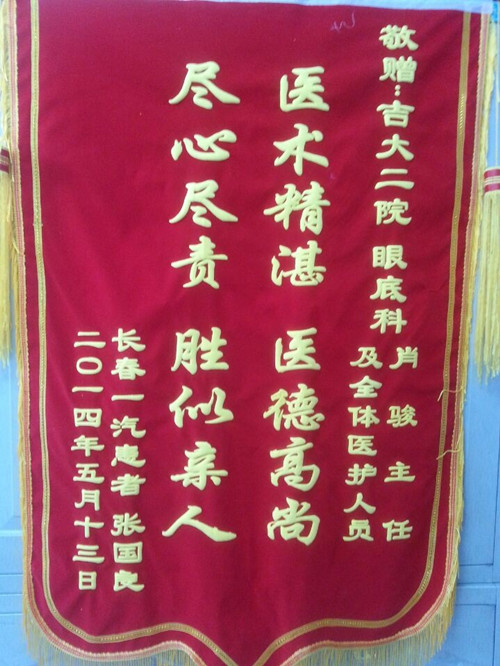 敬赠:吉大二院 眼底科 肖骏主任
及全体医护人员
医术精湛 医德高尚
尽心尽责 胜似亲人
长春一汽患者 张国良
二〇一四年五月十三日